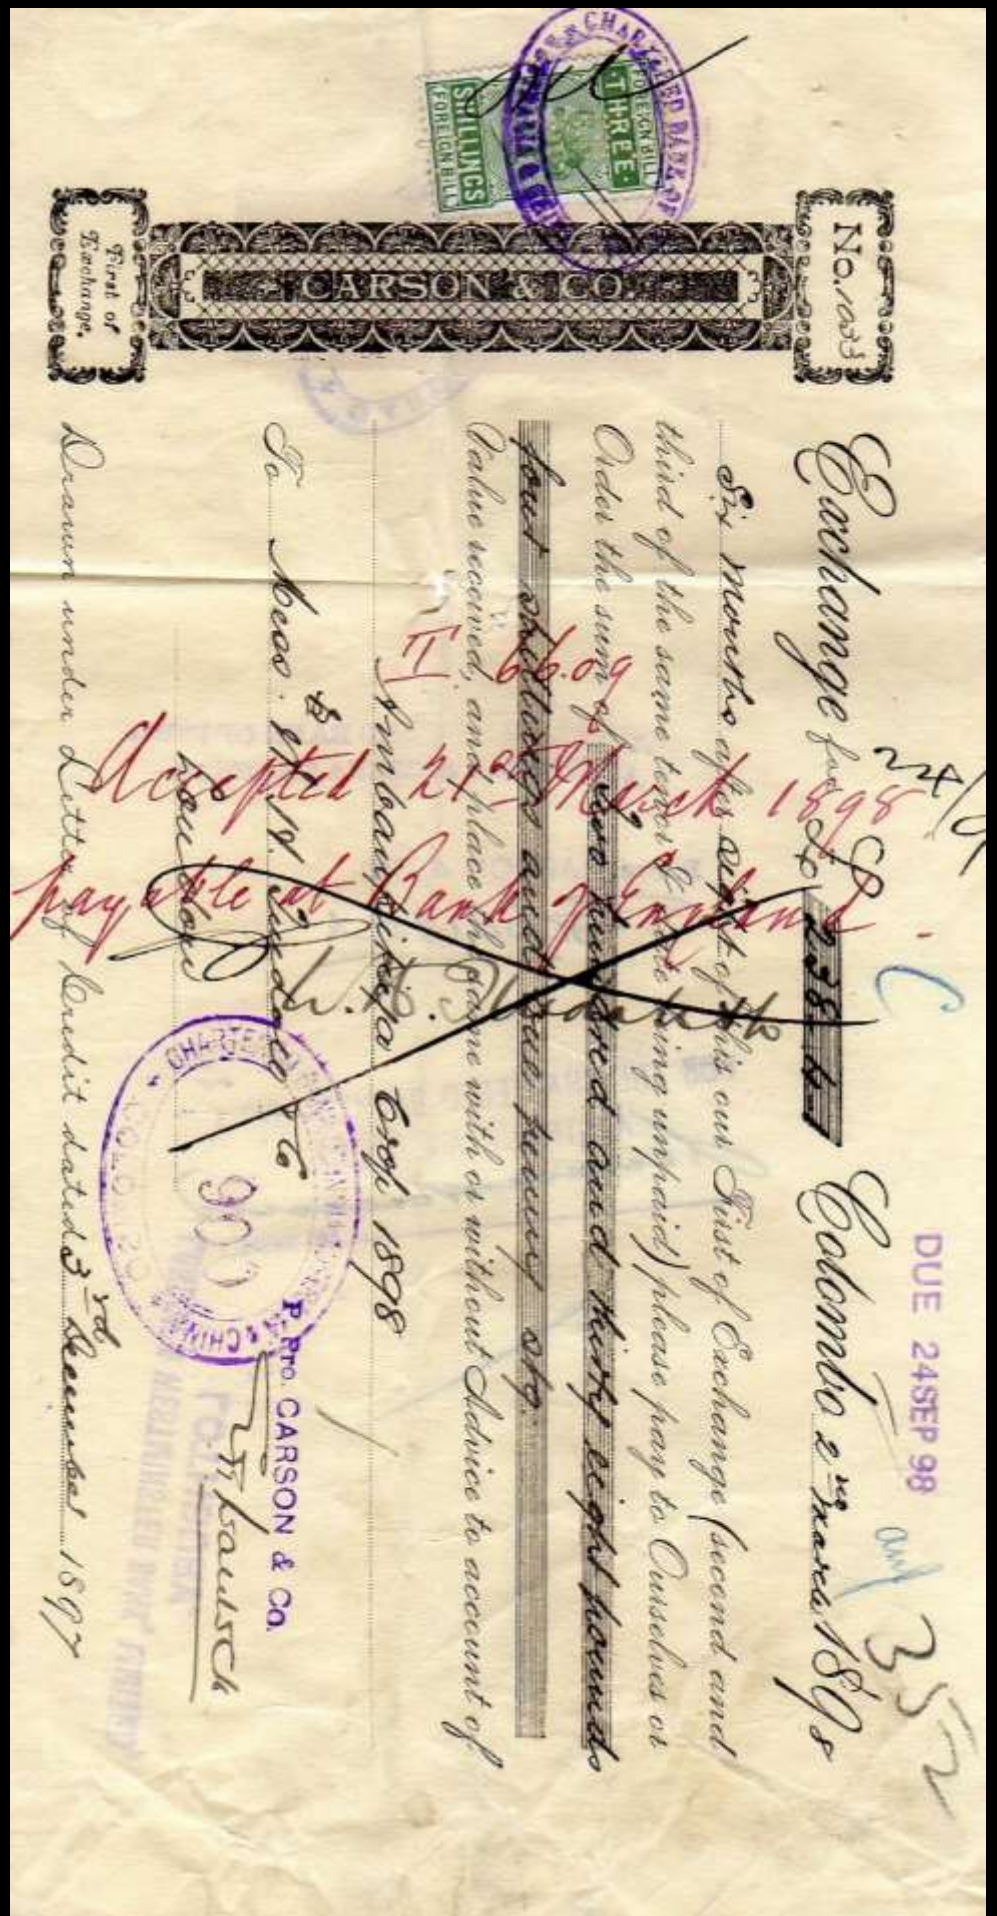 No. 1023
CARSON & CO.
First of
Exchange.
FOREIGN BILL
THREE
SHILLINGS
FOREIGN BILL
CHARTERED BANK OF
DUE 24 SEP 98
352
Exchange for £ 238 4 - Colombo 2nd March 1898
Six months after sight of this our First of Exchange (second and
third of the same tenor & date being unpaid) please pay to Ourselves or
Order the sum of Two hundred and thirty eight pounds
four shillings and pence stg.
Value received, and place the same with or without Advice to account of
Crop 1898
To Mess.
London
Drawn under Letter of Credit dated 3rd December 1897
P. Pro. CARSON & Co.
II 66.09
Accepted 21st March 1898
payable at Bank of England
CHARTERED BANK OF INDIA AUSTRALIA & CHINA
COLOMBO
90